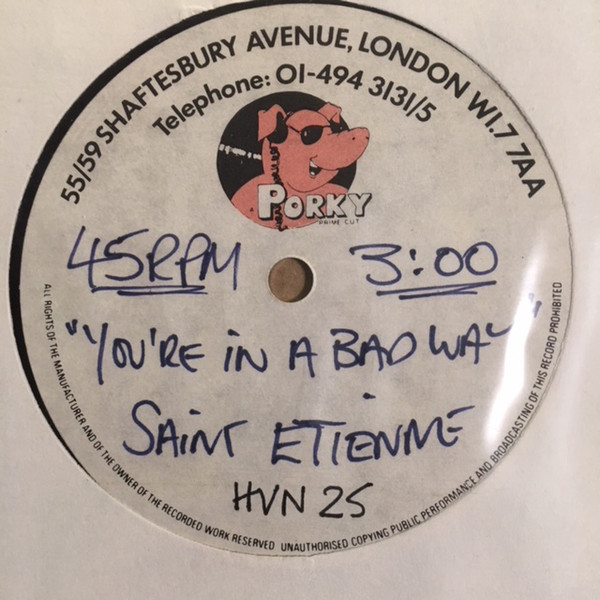 55/59 SHAFTESBURY AVENUE, LONDON W1.7 7AA
Telephone: 01-494 3131/5
PORKY
PRIME CUT
45RPM 3:00
"YOU'RE IN A BAD WAY"
SAINT ETIENNE
HVN 25
ALL RIGHTS OF THE MANUFACTURER AND OF THE OWNER OF THE RECORDED WORK RESERVED UNAUTHORISED COPYING PUBLIC PERFORMANCE AND BROADCASTING OF THIS RECORD PROHIBITED